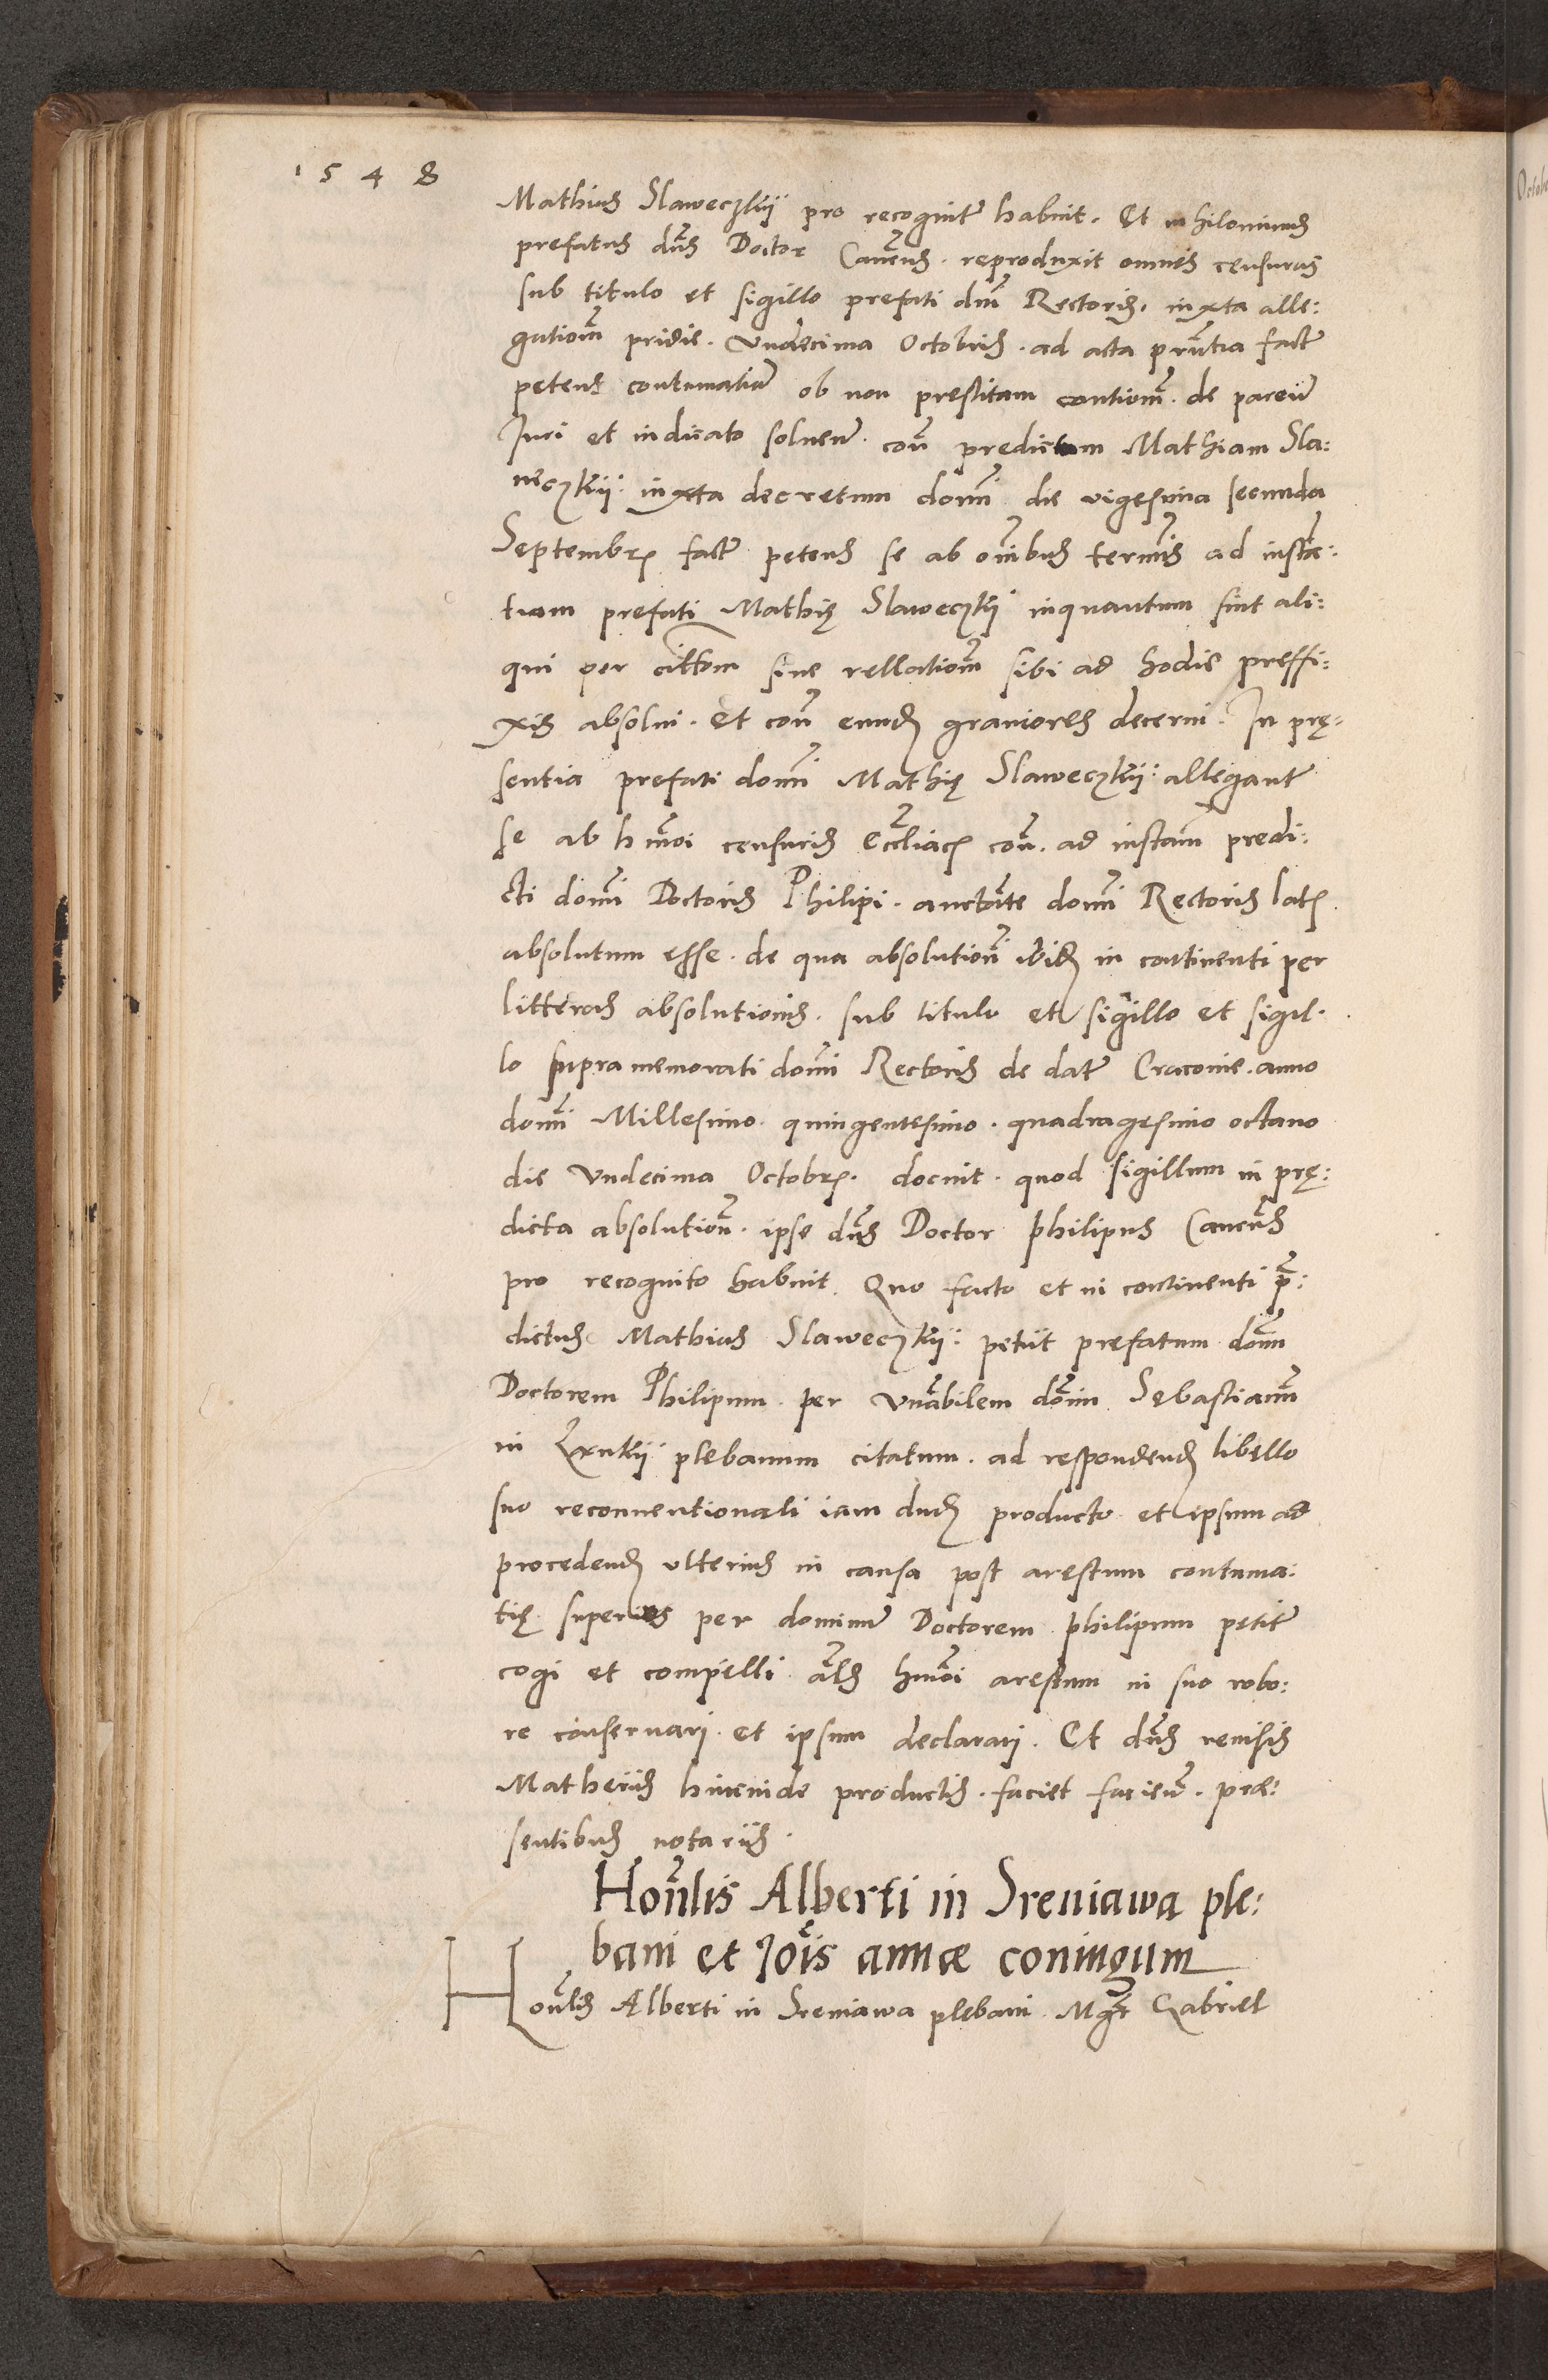 1548
Mathias Slaweczkÿ pro recognitũ habuit. Et nihilominus
prefatus dñs Doctor Canẽus. reproduxit omnes censuras
sub titulo et sigillo prefati dñi Rectoris, iuxta alle:
gationẽ pridie. Vndecima Octobris. ad acta prñtia factã
petens contumatiã ob non prestitam cautionẽ. de pareñ
Iuri et iudicato soluenĩ. coñ predictum Mathiam Sla:
weczkÿ: iuxta decretum domĩ die vigesima secunda
Septembrꝭ factũ petens se ab om̃ibus termĩs ad instã:
tiam prefati Mathię Slaweczkÿ inquantum sint ali:
qui per citt̃om siue rellationẽ sibi ad hodie preffi:
xis absolui. et coñ eundꝫ grauiores decerni. In prę:
sentia prefati domĩ Mathię Slaweczkÿ: allegantẽ
se ab hm̃oi censuris Eccl̃iacꝭ coñ. ad instañ predi:
cti domĩ Doctoris Philipi. auctãte domĩ Rectoris latꝭ
absolutum esse. de qua absolutionẽ ibidꝫ in continenti per
litteras absolutionis. sub titulo et sigillo et sigil.
lo supra memorati domĩ Rectoris de datũ Cracouie. anno
domĩ Millesimo. quingentesimo. quadragesimo octauo
die Vndecima Octobrꝭ. docuit. quod sigillum in prę:
dicta absolutionẽ. ipse dñs Doctor philipus Cancẽus
pro recognito habuit. Quo facto et in continenti p̃:
dictus Mathias Slaweczkÿ: petiit prefatum domĩ
Doctorem Philipum. per Vnãbilem domĩ Sębastianũ
in plebanum citatum. ad respondendꝫ libello
suo reconuentionali iam dudꝫ producto et ipsum ad
procedendꝫ vlterius in causa post arestum contuma:
tię superius per dominũ Doctorem philipum petitũ
cogi et compelli. al̃s hm̃oi arestum in suo robo:
re conseruari. et ipsum declarari. Et dñs reuisis
Matheriis hincinde productis. faciet facienĩ. præ:
sentibus notariis.
Hoñlis Alberti in Sreniawa ple:
bani et Joẽis annæ coniugum
Hoñlis Alberti in Sreniawa plebani. Mgr̃ Gabriel